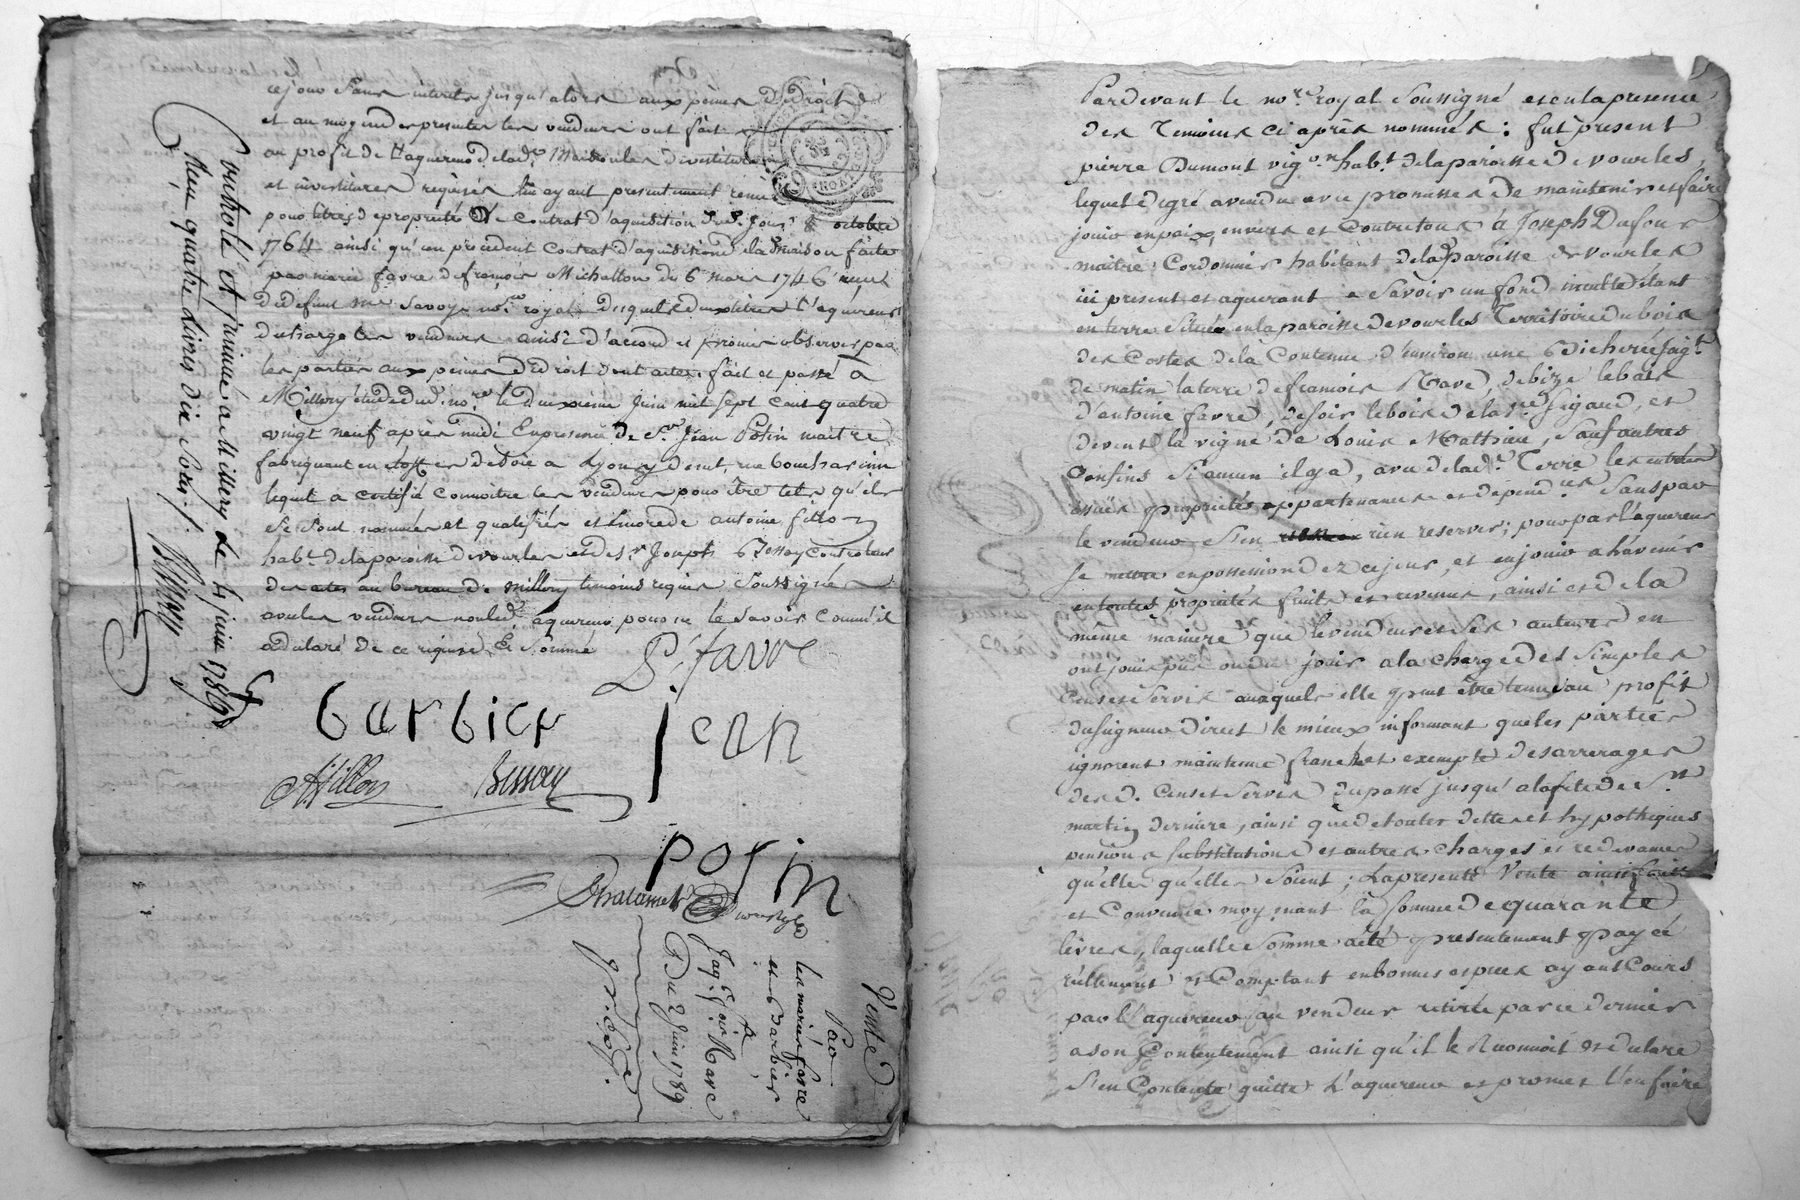 ce jour sans interets jusqu'alors aux peines de droit
et au moyen des presentes les vendeurs ont fait
au profit de l'aquereur de lad.e Maison les devestitures
et investitures requises luy ayant presentement remis
pour titres de proprieté le contrat d'aquisition octobre
1764 ainsi qu'un precedent contrat d'aquisition de la Maison faite
par marie favre de françois Michallon du 6 mars 1746 reçu
de defunt me savoy no.re royal desquels deux titres l'aquereur
decharge les vendeurs ainsi d'accord et promis observer par
les parties aux peines de droit dont acte: fait et passé a
Millery étude dud. no.re le deuxieme Juin mil sept cent quatre
vingt neuf après midi En presence de S.r Jean Posin maitre
fabriquant en étoffes de soie a Lyon y demt. rue
lequel a certifié connoitre les vendeurs pour être tels qu'ils
se sont nommés et qualifiés et encore de antoine fillon
habt. de la paroisse de vourles et de s.r Joseph Bessay controleur
des actes au bureau de Millery temoins requis soussignés
avec les vendeurs non led. aquereur pour ne le savoir comme il
a declaré de ce requis Et sommé
P. favre
barbier Jean
A. fillon Bessay
posin
Controlé et insinué a Millery le 4 juin 1789
Reçu quatre Livres dix sols
Bessay
Vente
Par
les mariés favre
et Barbier
A
Jaq. Mave
Du 2 Juin 1789
Pardevant le no.re royal soussigné et en la presence
des Temoins ci après nommés: fut present
pierre Dumont vig.on habt. de la paroisse de vourles,
lequel de gré a vendu avec promesse de maintenir et faire
jouir en paix, envers et contre tous a Joseph Dufour
maitre Cordonnier habitant de lad. paroisse de vourles
ici present et aquerant a savoir un fond inculte étant
en terre situé en la paroisse de vourles Territoire du bois
des Costes de la Contenue d'environ une Bicherée joigt.
de matin la terre de françois Mave, de bize le bois
d'antoine favre, de soir le bois de la Sigaud, et
de vent la vigne de Louis Matthieu, sauf autres
Confins si aucun il y a, avec de lad.e Terre les entrées
issües proprietés appartenances et depend.ces sans par
le vendeur s'en rien reserver; pour par l'aquereur
se mettre en possession dez ce jour, et en jouir a l'avenir
en toutes propriétés fruits et revenus, ainsi et de la
même maniere que le vendeur et ses auteurs en
ont joui pu ou du jouir a la charge des simples
Cens et servis auxquels elle peut être tenue au profit
du seigneur direct le mieux informant que les parties
ignorent maintenue franche et exempte des arrerages
des d. Cens et Servis du passé jusqu'a la fete de S.t
martin derniere, ainsi que de toutes dettes et hypotheques
pensions substitutions et autres charges et redevances
qu'elles qu'elles soient; La presente Vente ainsi faite
et Convenue moyennant la somme de quarante
livres, laquelle somme a été presentement payée
réellement et Comptant en bonnes especes ayant Cours
par l'aquereur au vendeur retirée par ce dernier
a son Contentement ainsi qu'il le Reconnoit et declare
s'en Contente quitte L'aquereur et promet l'en faire